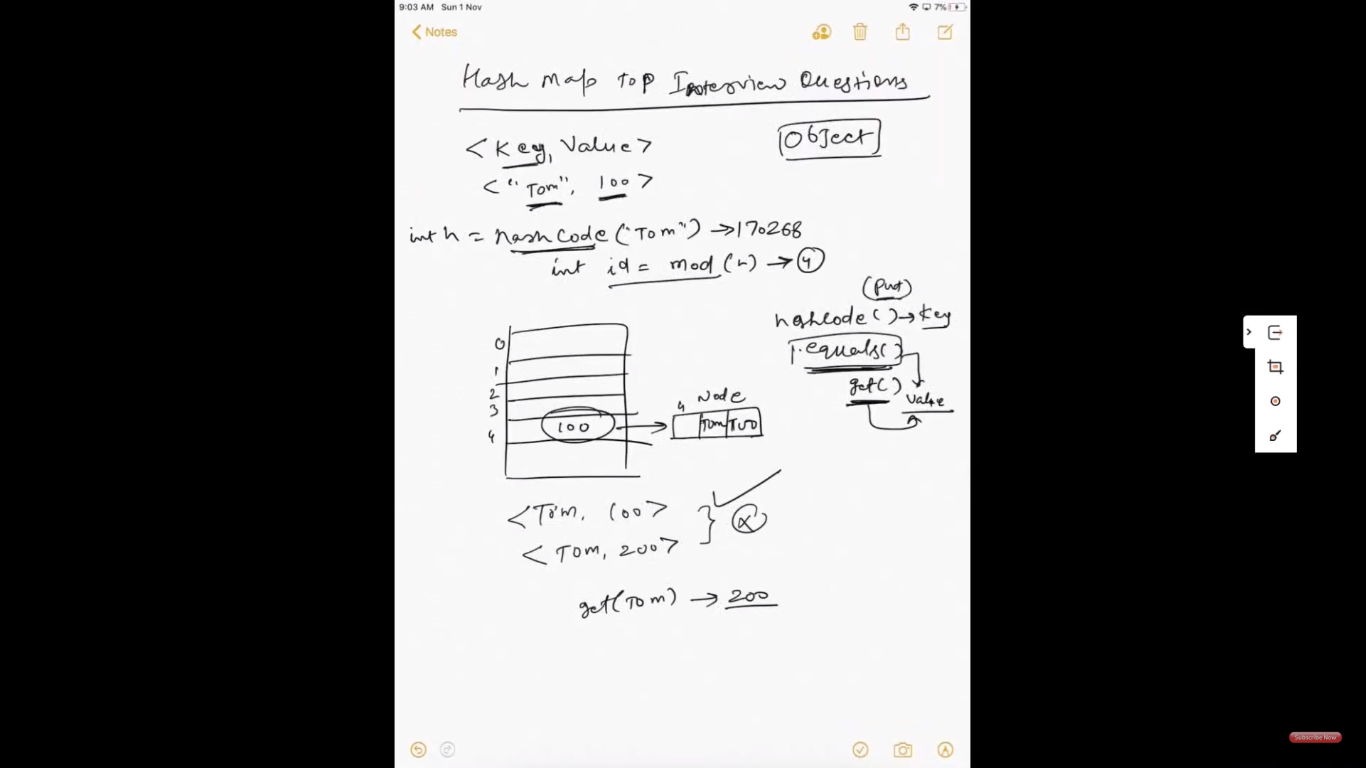 9:03 AM Sun 1 Nov
7%
Notes
Hash Map Top Interview Questions
<Key, Value>
Object
<"Tom", 100>
int h = hashCode("Tom") → 170268
int id = mod(h) → 4
(Put)
hashcode() → Key
.equals()
get()
Value
0
1
2
3
4
100
Node
4
Tom
<Tom, 100>
<Tom, 200>
get(Tom) → 200
Subscribe Now